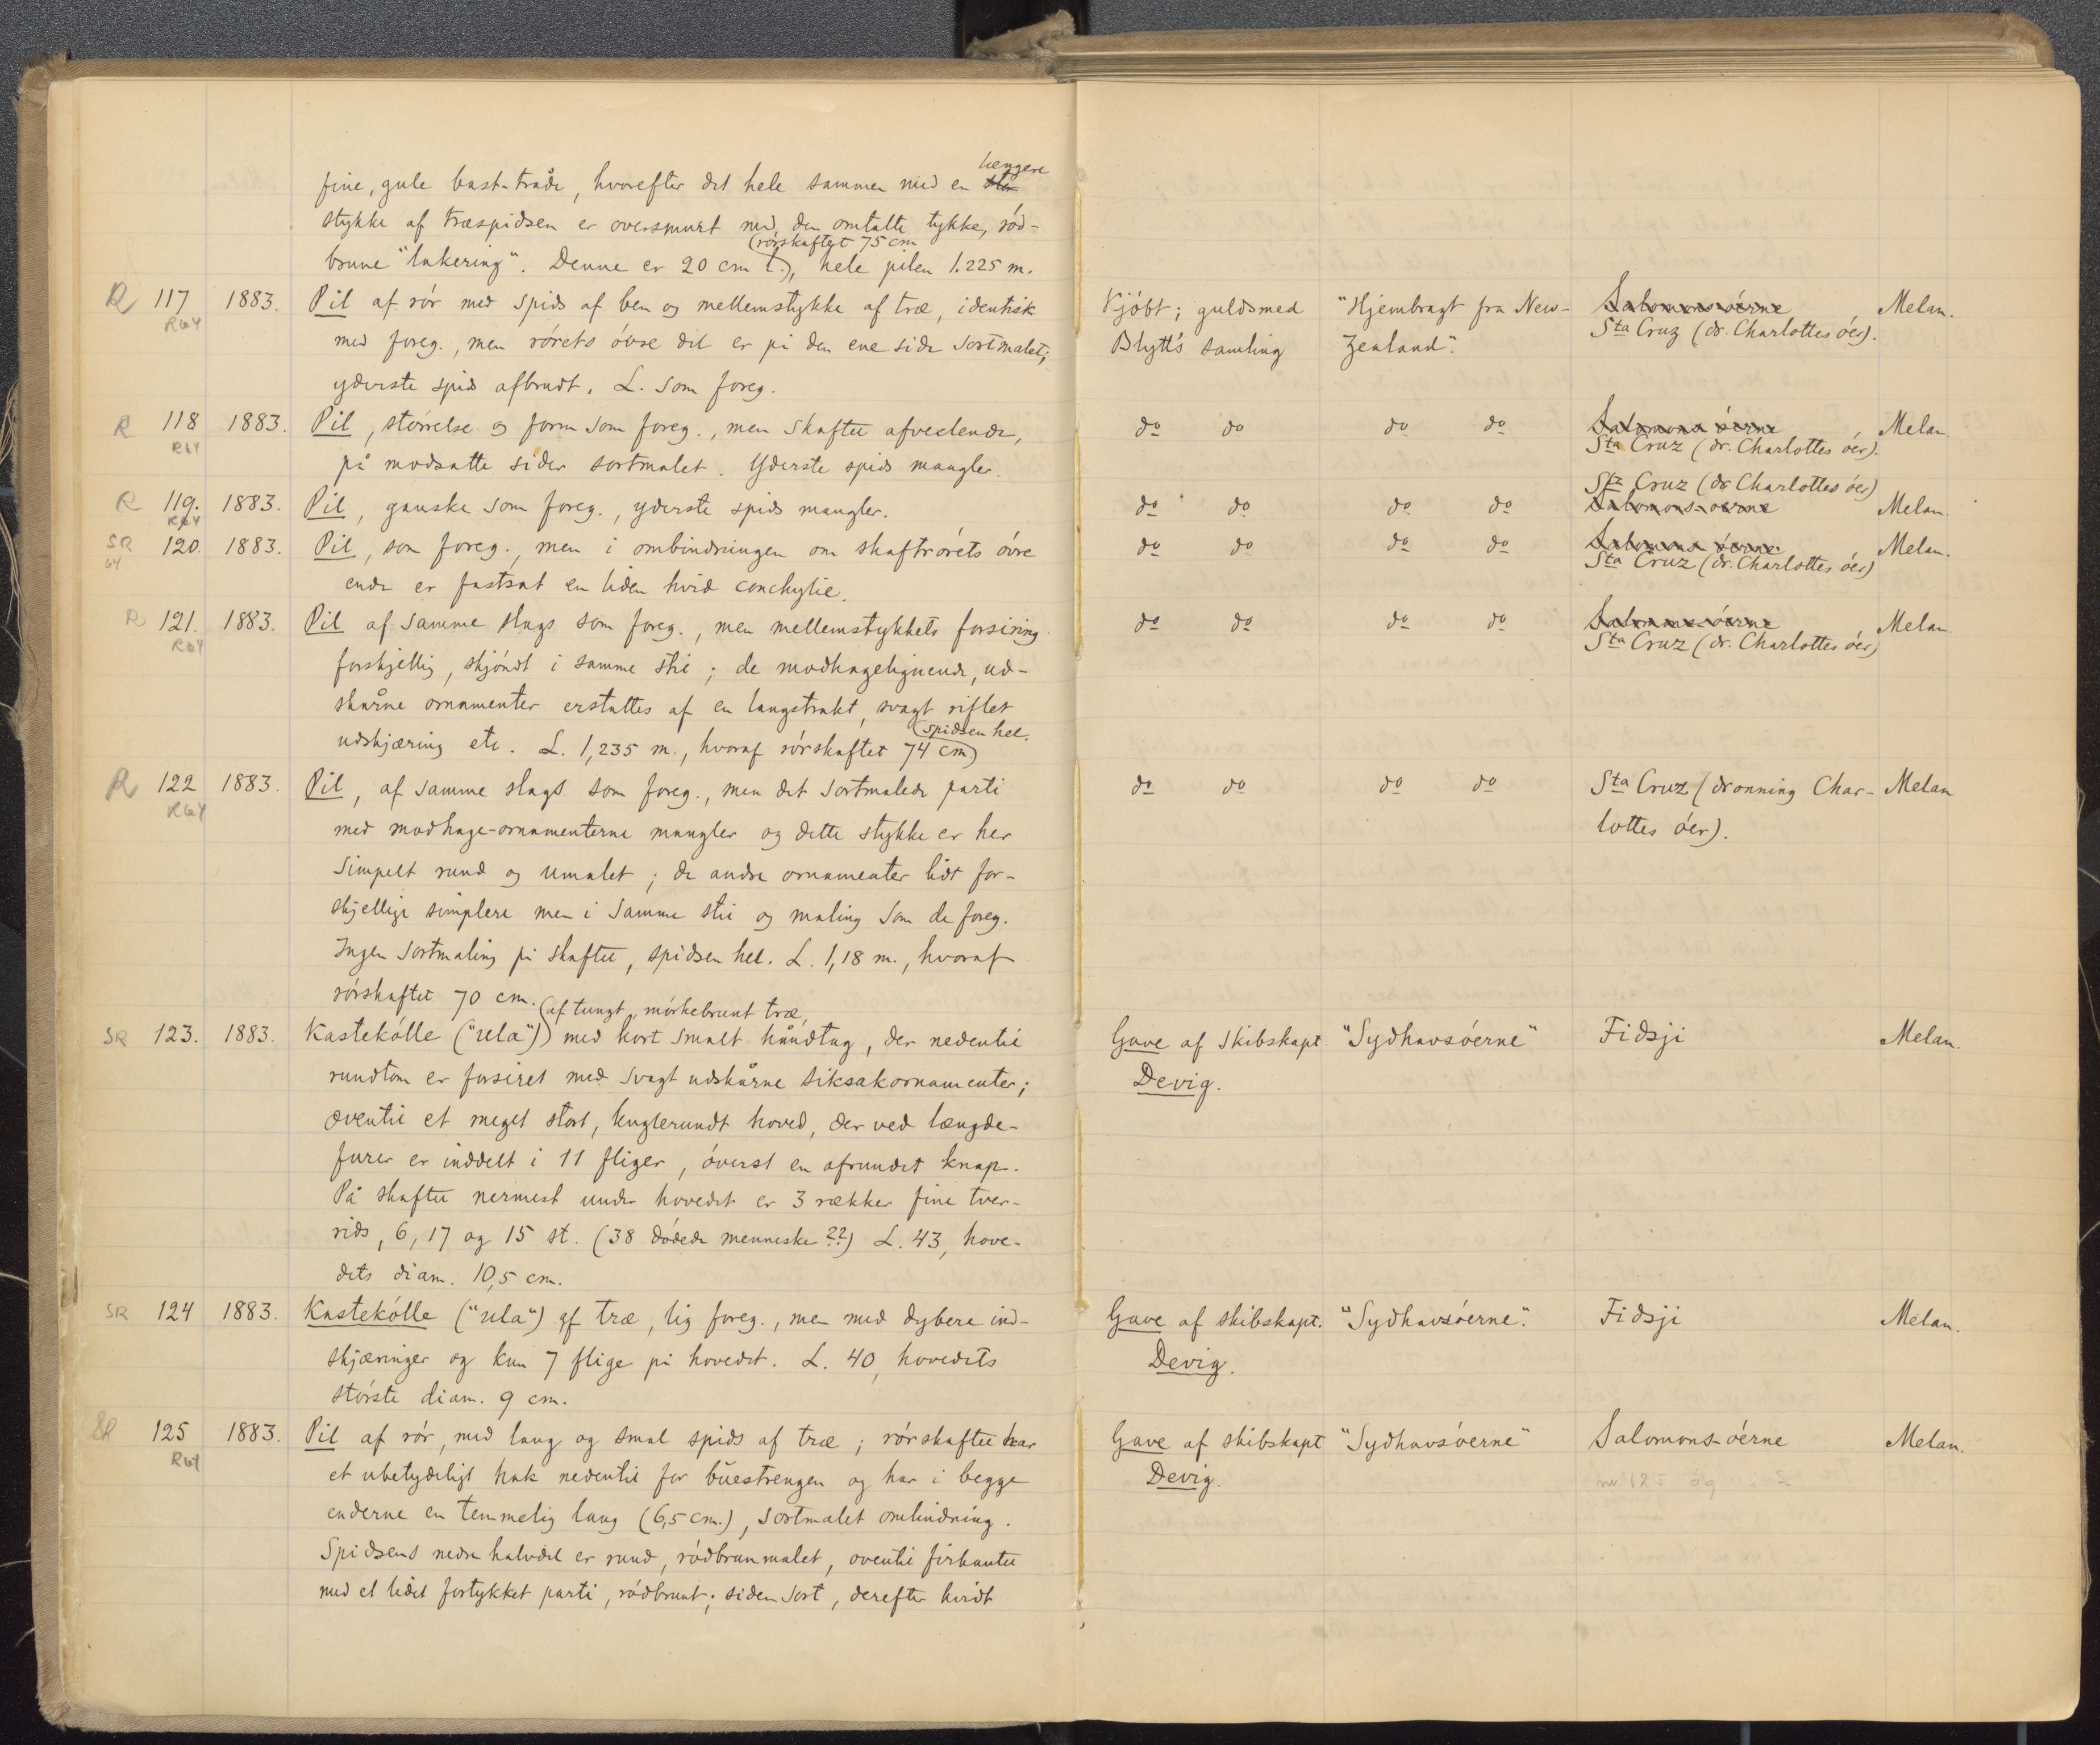 fine, gule bast-tråde, hvorefter det hele sammen med en længere
stykke af træspidsen er oversmurt med den omtalte tykke, rød-
(rørskaftet 75 cm
brune "lakering". Denne er 20 cm l.), hele pilen 1.225 m.
R 117 1883. Pil af rør med spids af ben og mellemstykke af træ, identisk Kjöbt; guldsmed "Hjembragt fra New- Salomons-öerne Melan.
R64 med foreg., men rørets övre del er på den ene side sortmalet; Blytt's samling Zealand". Sta Cruz (dr. Charlottes öer).
yderste spids afbrudt. L. som foreg.
R 118 1883. Pil, störrelse og form som foreg., men skaftet afvexlende, do do do do Salomons öerne Melan.
R64 på modsatte sider sortmalet. Yderste spids mangler. Sta Cruz (dr. Charlottes öer).
Sta Cruz (dr Charlottes öer)
R 119. 1883. Pil, ganske som foreg., yderste spids mangler. do do do do Salomons-öerne Melan.
R64
SR 120. 1883. Pil, som foreg., men i ombindningen om skaftrörets övre do do do do Salomons öerne Melan.
64 ende er fastsat en liden hvid conchylie. Sta Cruz (dr. Charlottes öer)
R 121. 1883. Pil af samme slags som foreg., men mellemstykkets forsiring do do do do Salomons-öerne Melan.
R64 forskjellig, skjöndt i samme stil; de modhagelignende, ud- Sta Cruz (dr. Charlottes öer)
skårne ornamenter erstattes af en langstrakt, svagt riflet
(spidsen hel.
udskjæring etc. L. 1,235 m., hvoraf rörskaftet 74 cm)
R 122 1883. Pil, af samme slags som foreg., men det sortmalede parti do do do do Sta Cruz (dronning Char- Melan
R64 med modhage-ornamenterne mangler og dette stykke er her lottes öer).
simpelt rund og umalet; de andre ornamenter lidt for-
skjellige simplere men i samme stil og maling som de foreg.
Ingen sortmaling på skaftet, spidsen hel. L. 1,18 m., hvoraf
rörskaftet 70 cm. (af tungt, mörkebrunt træ,
SR 123. 1883. Kastekölle ("ula") med kort smalt håndtag, der nedentil Gave af skibskapt. "Sydhavsöerne" Fidsji Melan.
rundtom er forsiret med svagt udskårne siksakornamenter; Devig.
oventil et meget stort, kuglerundt hoved, der ved længde-
furer er inddelt i 11 fliger, överst en afrundet knap.
På skaftet nermest under hovedet er 3 rækker fine tver-
rids, 6, 17 og 15 st. (38 dödede menneske??) L. 43, hove-
dets diam. 10,5 cm.
SR 124 1883. Kastekölle ("ula") af træ, lig foreg., men med dybere ind- Gave af skibskapt. "Sydhavsöerne". Fidsji Melan.
skjæringer og kun 7 flige på hovedet. L. 40, hovedets Devig.
störste diam. 9 cm.
SR 125 1883. Pil af rör, med lang og smal spids af træ; rörskaftet har Gave af skibskapt "Sydhavsöerne" Salomons-öerne Melan.
R64 et ubetydeligt hak nedentil for buestrengen og har i begge Devig.
enderne en temmelig lang (6,5 cm.), sortmalet ombindning.
Spidsens nedre halvdel er rund, rödbrunmalet, oventil firkantet
med et lidet fortykket parti, rödbrunt; siden sort, derefter hvidt